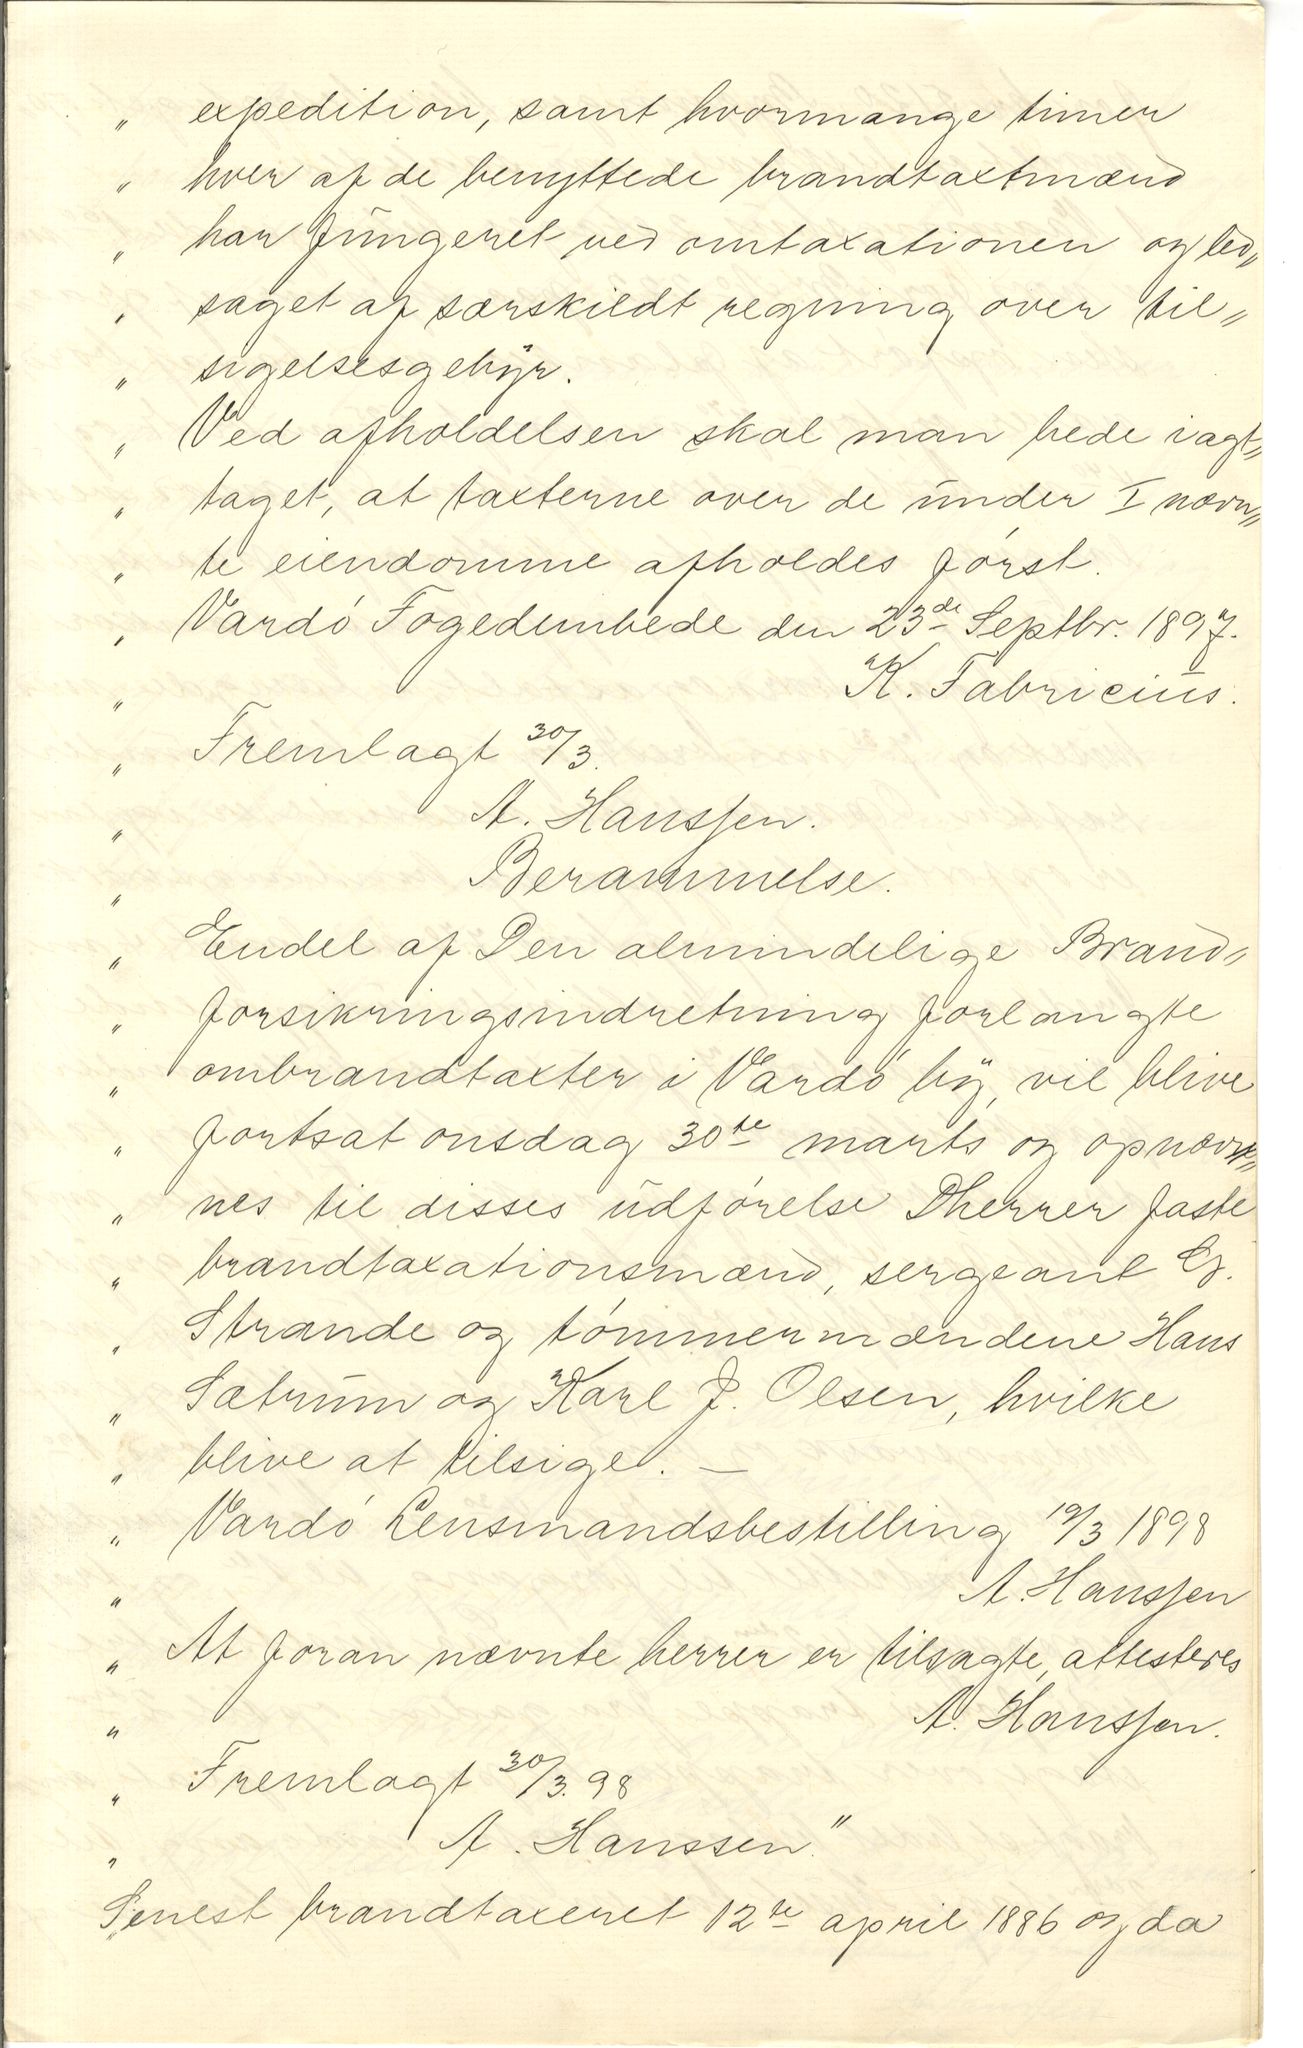 " expedition, samt hvormange timer
" hver af de benyttede brandtaxtmænd
" har fungeret ved omtaxationen og led„
" saget af særskildt regning over til„
" sigelsesgebyr.
" Ved afholdelsen skal man bede iagt„
" taget, at taxterne over de under I nævn„
" te eiendomme afholdes først.
" Vardø Fogedembede den 23de Septbr. 1897.
" K. Fabricius.
" Fremlagt 30/3.
" A. Hanssen.
" Berammelse.
" Endel af Den almindelige Brand„
" forsikringsindretning forlangte
" ombrandtaxter i Vardø by, vil blive
" fortsat onsdag 30te marts og opnævn„
" nes til disses udførelse Dherrer faste
" brandtaxationsmænd, sergeant G.
" Strande og tømmermændene Hans
" Sætrum og Karl J. Olsen, hvilke
" blive at tilsige. —
" Vardø Lensmandsbestilling 19/3 1898
" A. Hanssen
" At foran nævnte herrer er tilsagte, attesteres
" A. Hanssen.
" Fremlagt 30/3.98
" A. Hanssen."
Senest brandtaxeret 12te april 1886 og da